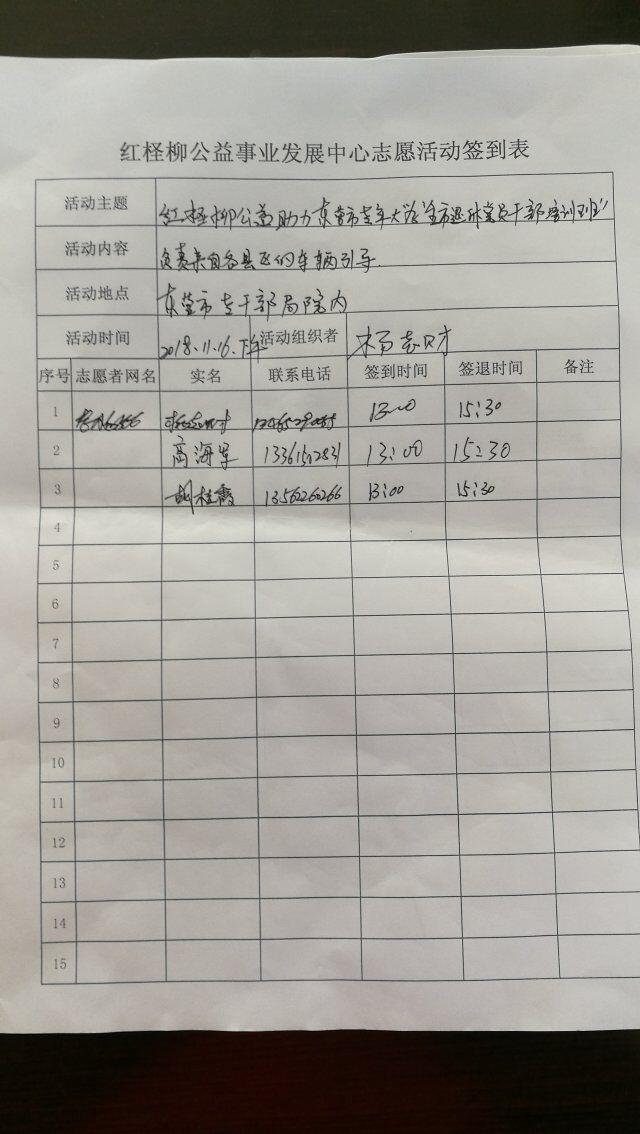 红柽柳公益事业发展中心志愿活动签到表
活动主题 红柽柳公益助力东营市老年大学"全市退休党员干部培训班"
活动内容 负责来自各县区的车辆引导.
活动地点 东营市老干部局院内
活动时间 2018.11.16.下午 活动组织者 杨志财
序号 志愿者网名 实名 联系电话 签到时间 签退时间 备注
1 杨志财 13:00 15:30
2 高海军 13:00 15:30
3 胡桂霞 13562260266 13:00 15:30
4
5
6
7
8
9
10
11
12
13
14
15